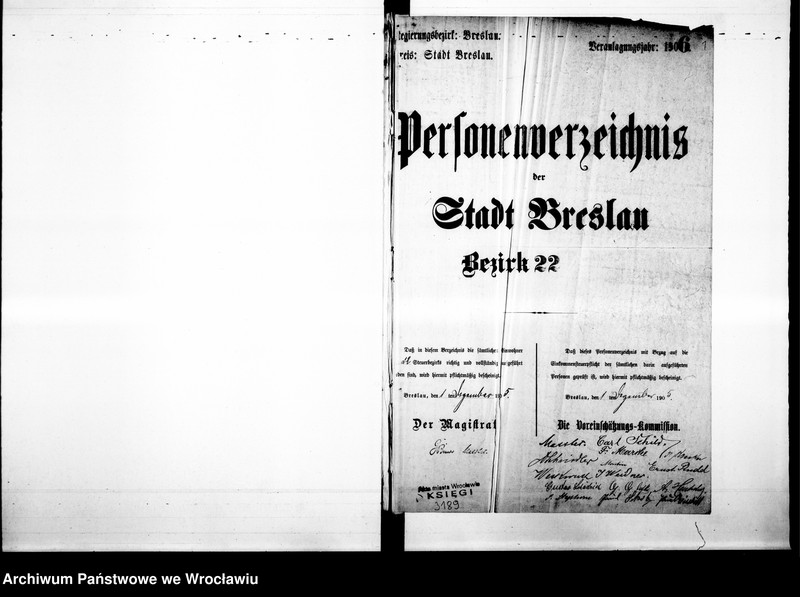 Regierungsbezirk: Breslau.
Kreis: Stadt Breslau.
Veranlagungsjahr: 1906
Personenverzeichnis
der
Stadt Breslau
Bezirk 22
Daß in diesem Verzeichnis die sämtlichen Einwohner
Steuerbezirks richtig und vollständig aufgeführt
worden sind, wird hiermit pflichtmäßig bescheinigt.
Breslau, den 1 ten Dezember 1905.
Der Magistrat
Daß dieses Personenverzeichnis mit Bezug auf die
Einkommensteuerpflicht der sämtlichen darin aufgeführten
Personen geprüft ist, wird hiermit pflichtmäßig bescheinigt.
Breslau, den 1 ten Dezember 1905.
Die Voreinschätzungs-Kommission.
Carl Schild.
Akta miasta Wrocławia
KSIĘGI
3189
Archiwum Państwowe we Wrocławiu